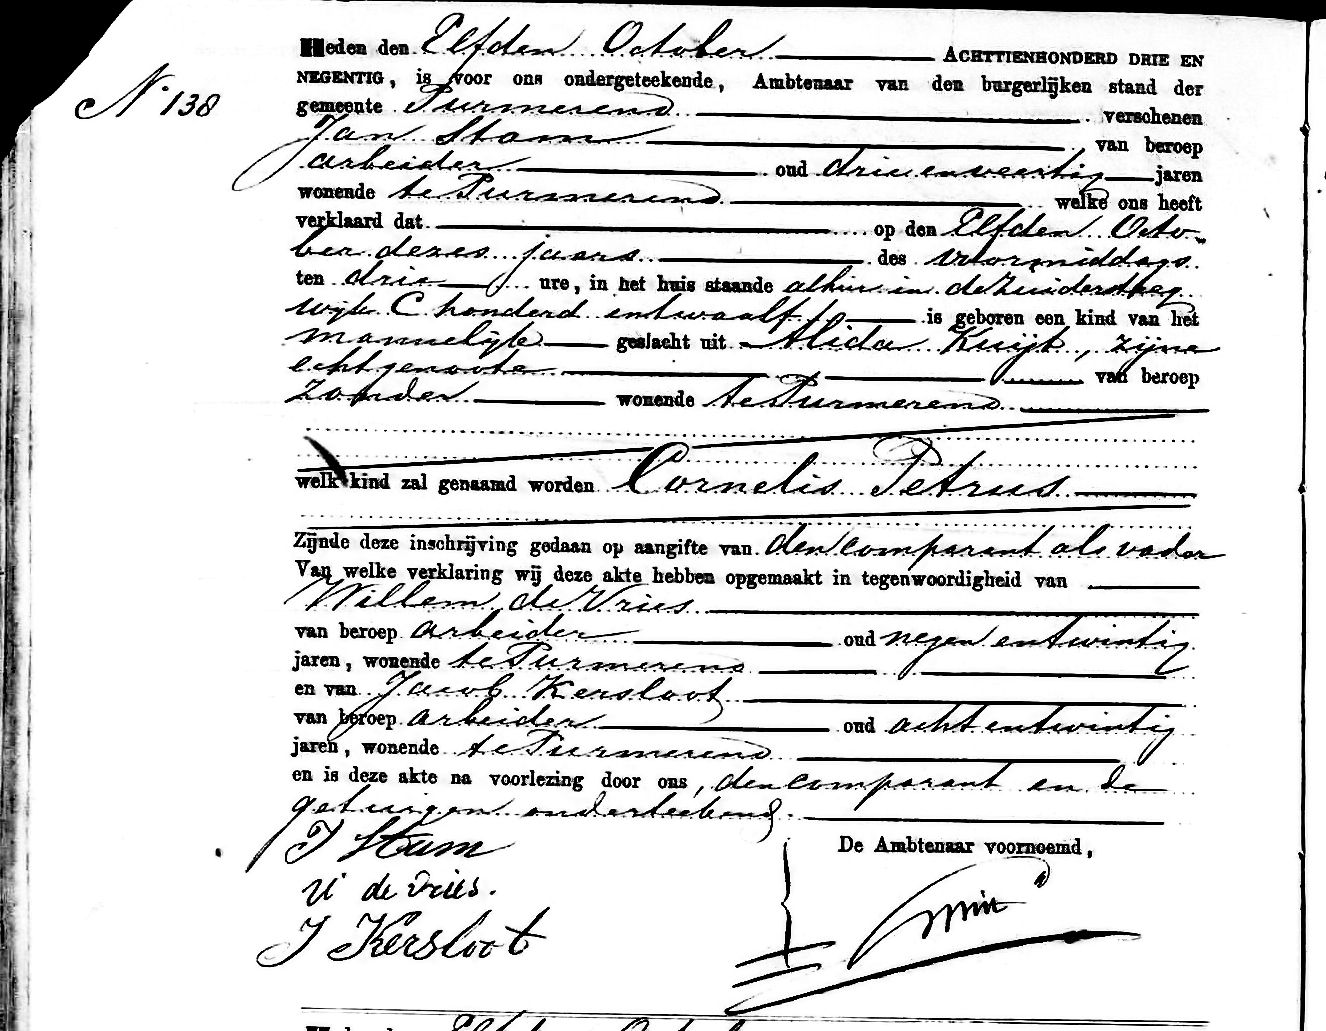 Heden den Elfden October ACHTTIENHONDERD DRIE EN
NEGENTIG, is voor ons ondergeteekende, Ambtenaar van den burgerlijken stand der
No 138
gemeente Purmerend verschenen
Jan Stam van beroep
arbeider oud drie en veertig jaren
wonende te Purmerend welke ons heeft
verklaard dat op den Elfden Octo-
ber dezes jaars des voormiddags
ten drie ure, in het huis staande alhier in de Zuidersteeg
wijk C honderd en twaalf is geboren een kind van het
mannelijk geslacht uit Alida Kuijt, zijne
echtgenoote van beroep
zonder wonende te Purmerend
welk kind zal genaamd worden Cornelis Petrus
Zijnde deze inschrijving gedaan op aangifte van den comparant als vader
Van welke verklaring wij deze akte hebben opgemaakt in tegenwoordigheid van
Willem de Vries
van beroep arbeider oud negen en twintig
jaren, wonende te Purmerend
en van Jacob Kersloot
van beroep arbeider oud acht en twintig
jaren, wonende te Purmerend
en is deze akte na voorlezing door ons, den comparant en de
getuigen onderteekend.
J Stam
De Ambtenaar voornoemd,
W de Vries.
J Kersloot